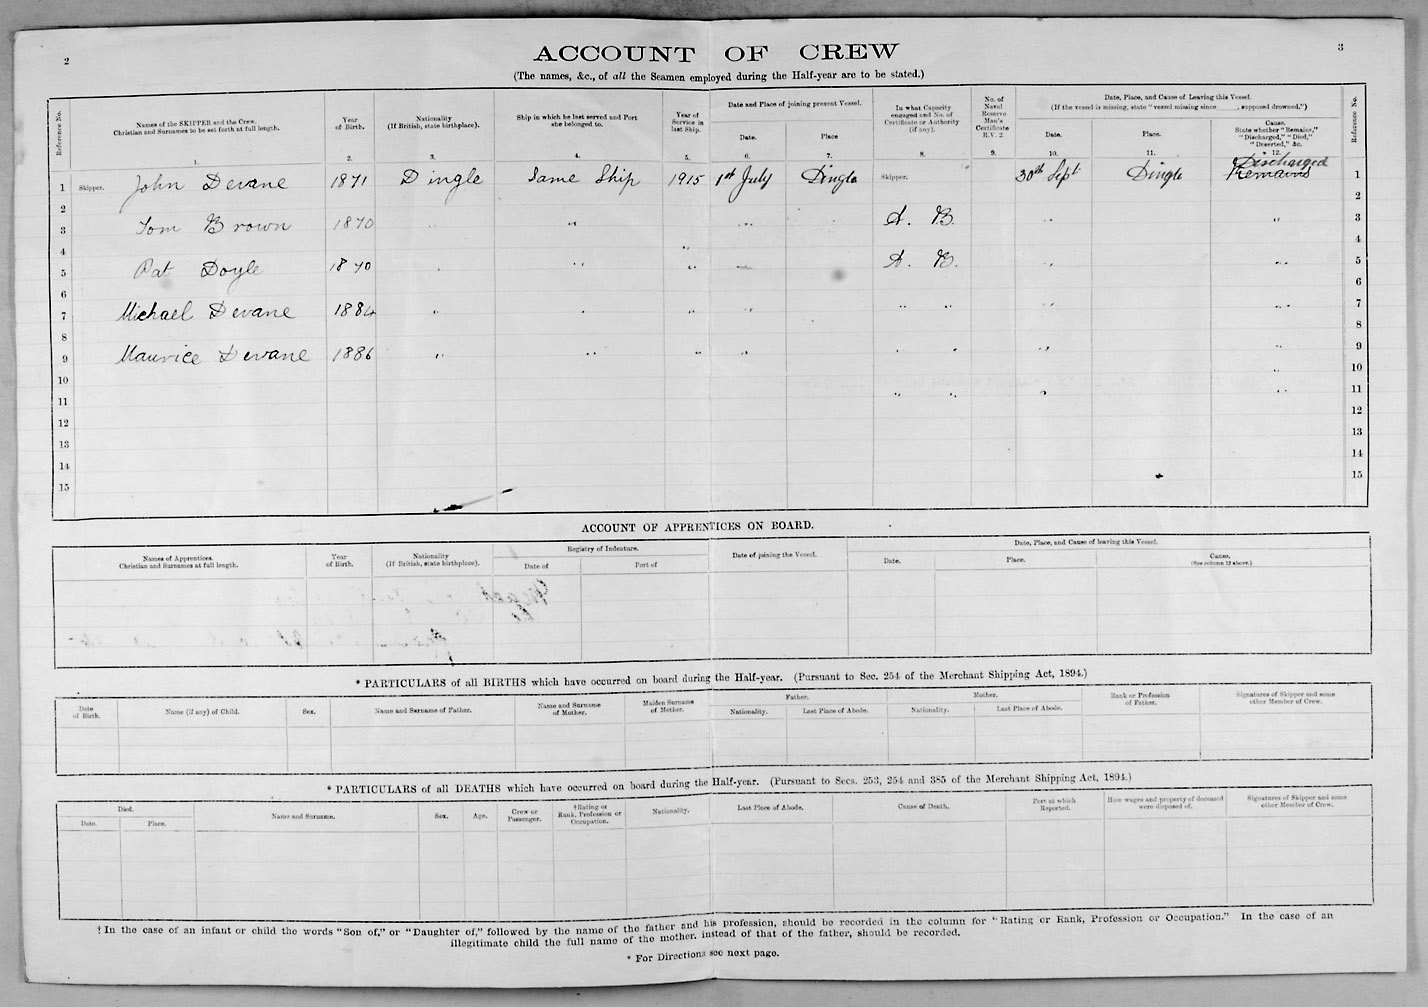 2
ACCOUNT OF CREW
3
(The names, &c., of all the Seamen employed during the Half-year are to be stated.)
Reference No.
Names of the SKIPPER and the Crew.
Christian and Surnames to be set forth at full length.
1.
Year
of Birth.
2.
Nationality
(If British, state birthplace).
3.
Ship in which he last served and Port
she belonged to.
4.
Year of
Service in
last Ship.
5.
Date and Place of joining present Vessel.
Date.
6.
Place
7.
In what Capacity
engaged and No. of
Certificate or Authority
(if any).
8.
No. of
Naval
Reserve
Man's
Certificate
R.V. 2.
9.
Date, Place, and Cause of Leaving this Vessel.
(If the vessel is missing, state "vessel missing since , supposed drowned.")
Date.
10.
Place.
11.
Cause.
State whether "Remains,"
"Discharged," "Died,"
"Deserted," &c.
12.
Reference No.
Discharged
1 Skipper. John Devane 1871 Dingle Same Ship 1915 1st July Dingle Skipper. 30th Sept Dingle Remains 1
2 2
3 Tom Brown 1870 " " " A. B. " " 3
4 " 4
5 Pat Doyle 1870 " " " " A. B. " " 5
6 6
7 Michael Devane 1884 " " " " " " " " 7
8 8
9 Maurice Devane 1886 " " " " " " " " 9
10 " 10
11 " " " " 11
12 12
13 13
14 14
15 15
ACCOUNT OF APPRENTICES ON BOARD.
Names of Apprentices.
Christian and Surnames at full length.
Year
of Birth.
Nationality
(If British, state birthplace).
Registry of Indenture.
Date of
Port of
Date of joining the Vessel.
Date, Place, and Cause of leaving this Vessel.
Date.
Place.
Cause.
(See column 12 above.)
* PARTICULARS of all BIRTHS which have occurred on board during the Half-year. (Pursuant to Sec. 254 of the Merchant Shipping Act, 1894.)
Date
of Birth.
Name (if any) of Child.
Sex.
Name and Surname of Father.
Name and Surname
of Mother.
Maiden Surname
of Mother.
Father.
Nationality.
Last Place of Abode.
Mother.
Nationality.
Last Place of Abode.
Rank or Profession
of Father.
Signatures of Skipper and some
other Member of Crew.
* PARTICULARS of all DEATHS which have occurred on board during the Half-year. (Pursuant to Secs. 253, 254 and 385 of the Merchant Shipping Act, 1894.)
Died.
Date.
Place.
Name and Surname.
Sex.
Age.
Crew or
Passenger.
†Rating or
Rank, Profession or
Occupation.
Nationality.
Last Place of Abode.
Cause of Death.
Port at which
Reported.
How wages and property of deceased
were disposed of.
Signatures of Skipper and some
other Member of Crew.
† In the case of an infant or child the words "Son of," or "Daughter of," followed by the name of the father and his profession, should be recorded in the column for "Rating or Rank, Profession or Occupation." In the case of an
illegitimate child the full name of the mother, instead of that of the father, should be recorded.
* For Directions see next page.